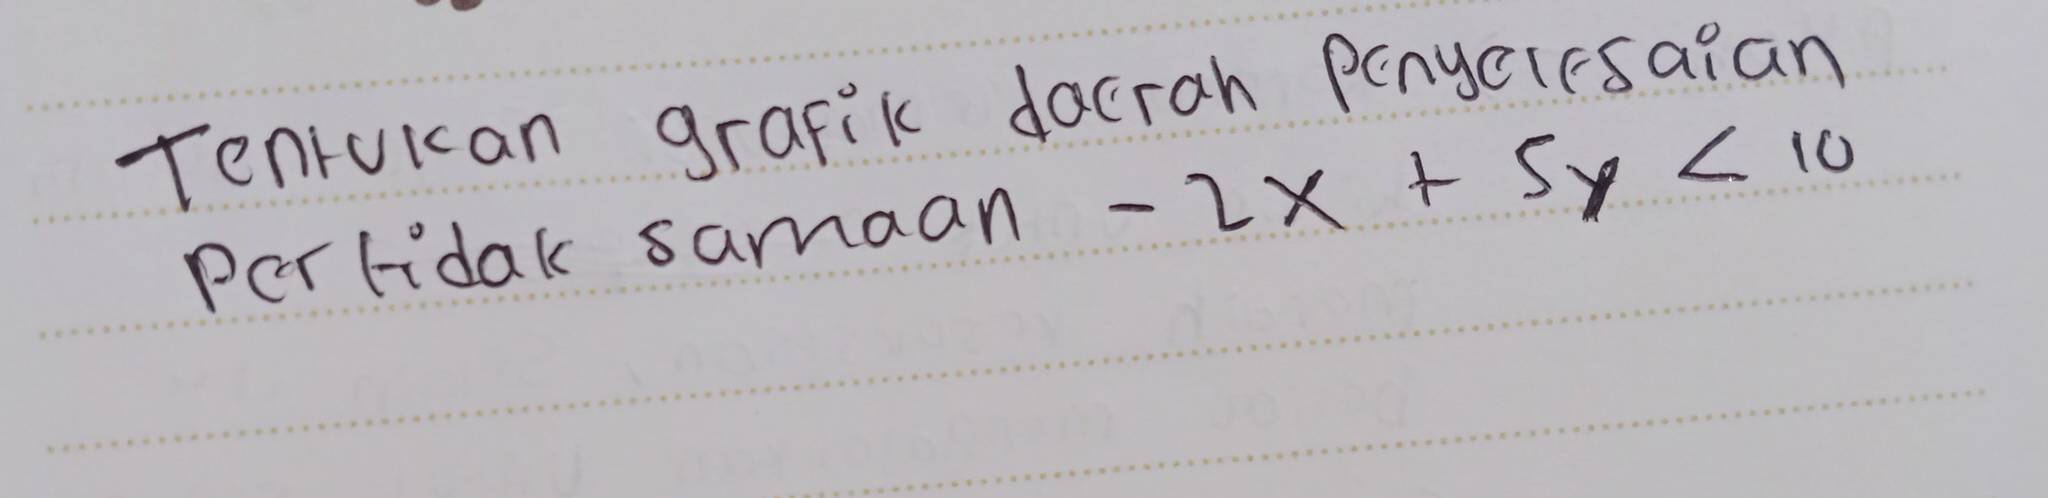 Tentukan grafik daerah penyelesaian
Pertidak samaan - 2x + 5y < 10